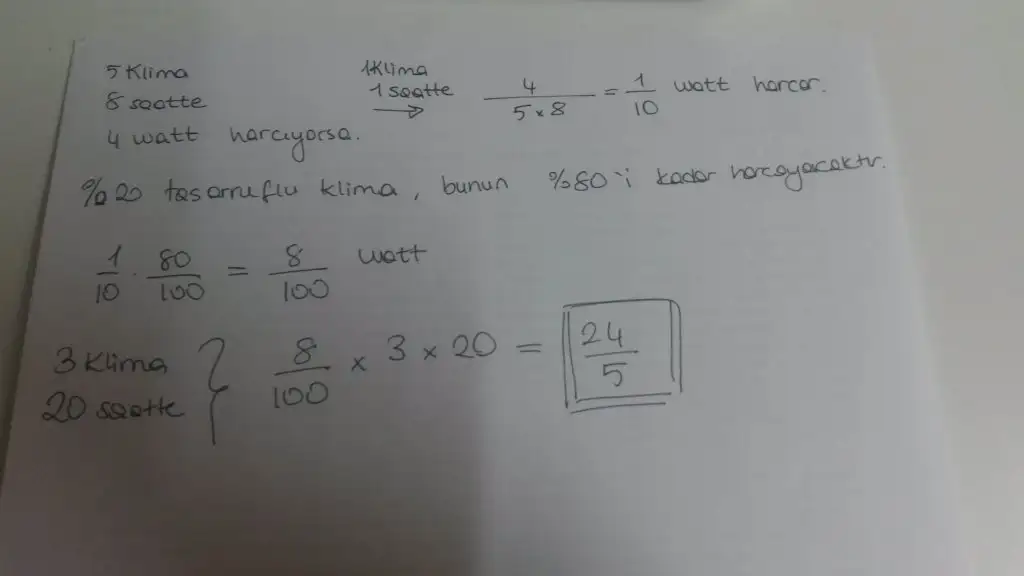 5 Klima
8 saatte
4 watt harcıyorsa.
1Klima
1 saatte
→ 4 / 5 x 8 = 1 / 10 watt harcar.
%20 tasarruflu klima, bunun %80'i kadar harcayacaktır.
1 / 10 . 80 / 100 = 8 / 100 watt
3 Klima
20 saatte
8 / 100 x 3 x 20 = 24 / 5